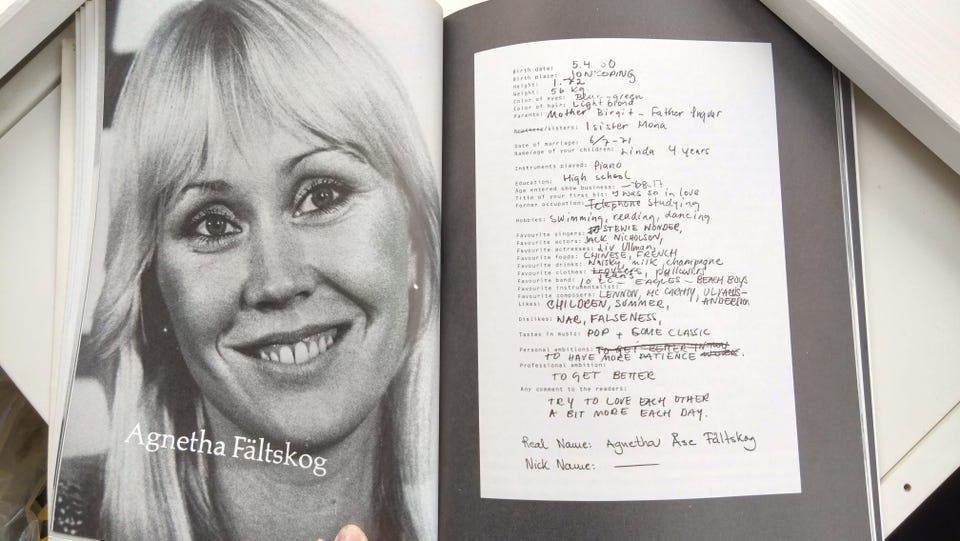 Agnetha Fältskog
Birth date: 5.4.50
Birth place: JONCÖPING
Height: 1.72
Weight: 56 kg
Color of eyes: Blue-green
Color of hair: Light blond
Parents: Mother Birgit - Father Ingvar
/sisters: 1 sister Mona
Date of marriage: 6/7-71
Name/age of your children: Linda 4 years
Instruments played: Piano
Education: High school
Age entered show business: -68.17
Title of your first hit: I was so in love
Former occupation: Telephone studying
Hobbies: Swimming, reading, dancing
Favourite singers: STEWIE WONDER,
Favourite actors: JACK NICHOLSON,
Favourite actresses: Liv Ullman,
Favourite foods: CHINESE, FRENCH
Favourite drinks: Whisky, milk, champagne
Favourite clothes: jeans, pullowers
Favourite band: 10 CC - EAGLES - BEACH BOYS
Favourite instrumentalist:
Favourite composers: LENNON, MC CARTNY, ULVAEUS-
ANDERSON
Likes: CHILDREN, SUMMER,
Dislikes: WAR, FALSENESS,
Tastes in music: POP + SOME CLASSIC
Personal ambitions: TO GET BETTER IN MY
TO HAVE MORE PATIENCE
Professional ambition:
TO GET BETTER
Any comment to the readers:
TRY TO LOVE EACH OTHER
A BIT MORE EACH DAY.
Real Name: Agnetha Åse Fältskog
Nick Name: